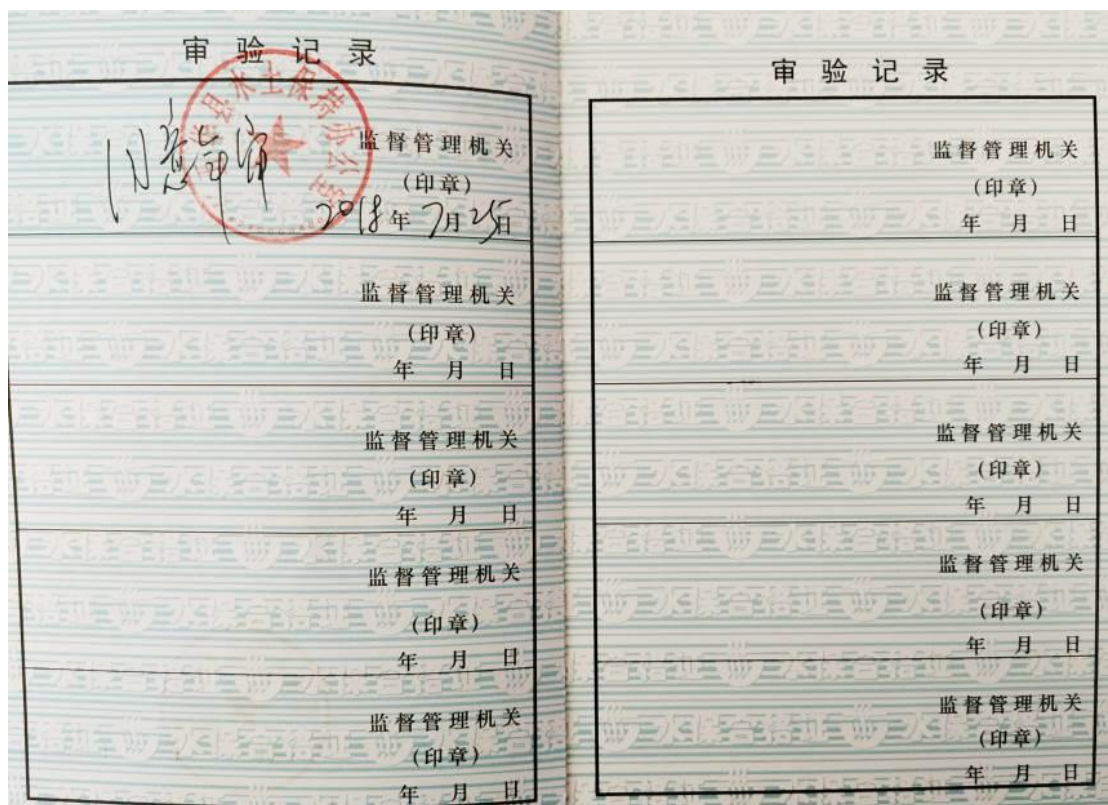 审验记录
县水土保持办公室
同意年审
监督管理机关
(印章)
2018年7月25日
监督管理机关
(印章)
年 月 日
监督管理机关
(印章)
年 月 日
监督管理机关
(印章)
年 月 日
监督管理机关
(印章)
年 月 日
审验记录
监督管理机关
(印章)
年 月 日
监督管理机关
(印章)
年 月 日
监督管理机关
(印章)
年 月 日
监督管理机关
(印章)
年 月 日
监督管理机关
(印章)
年 月 日